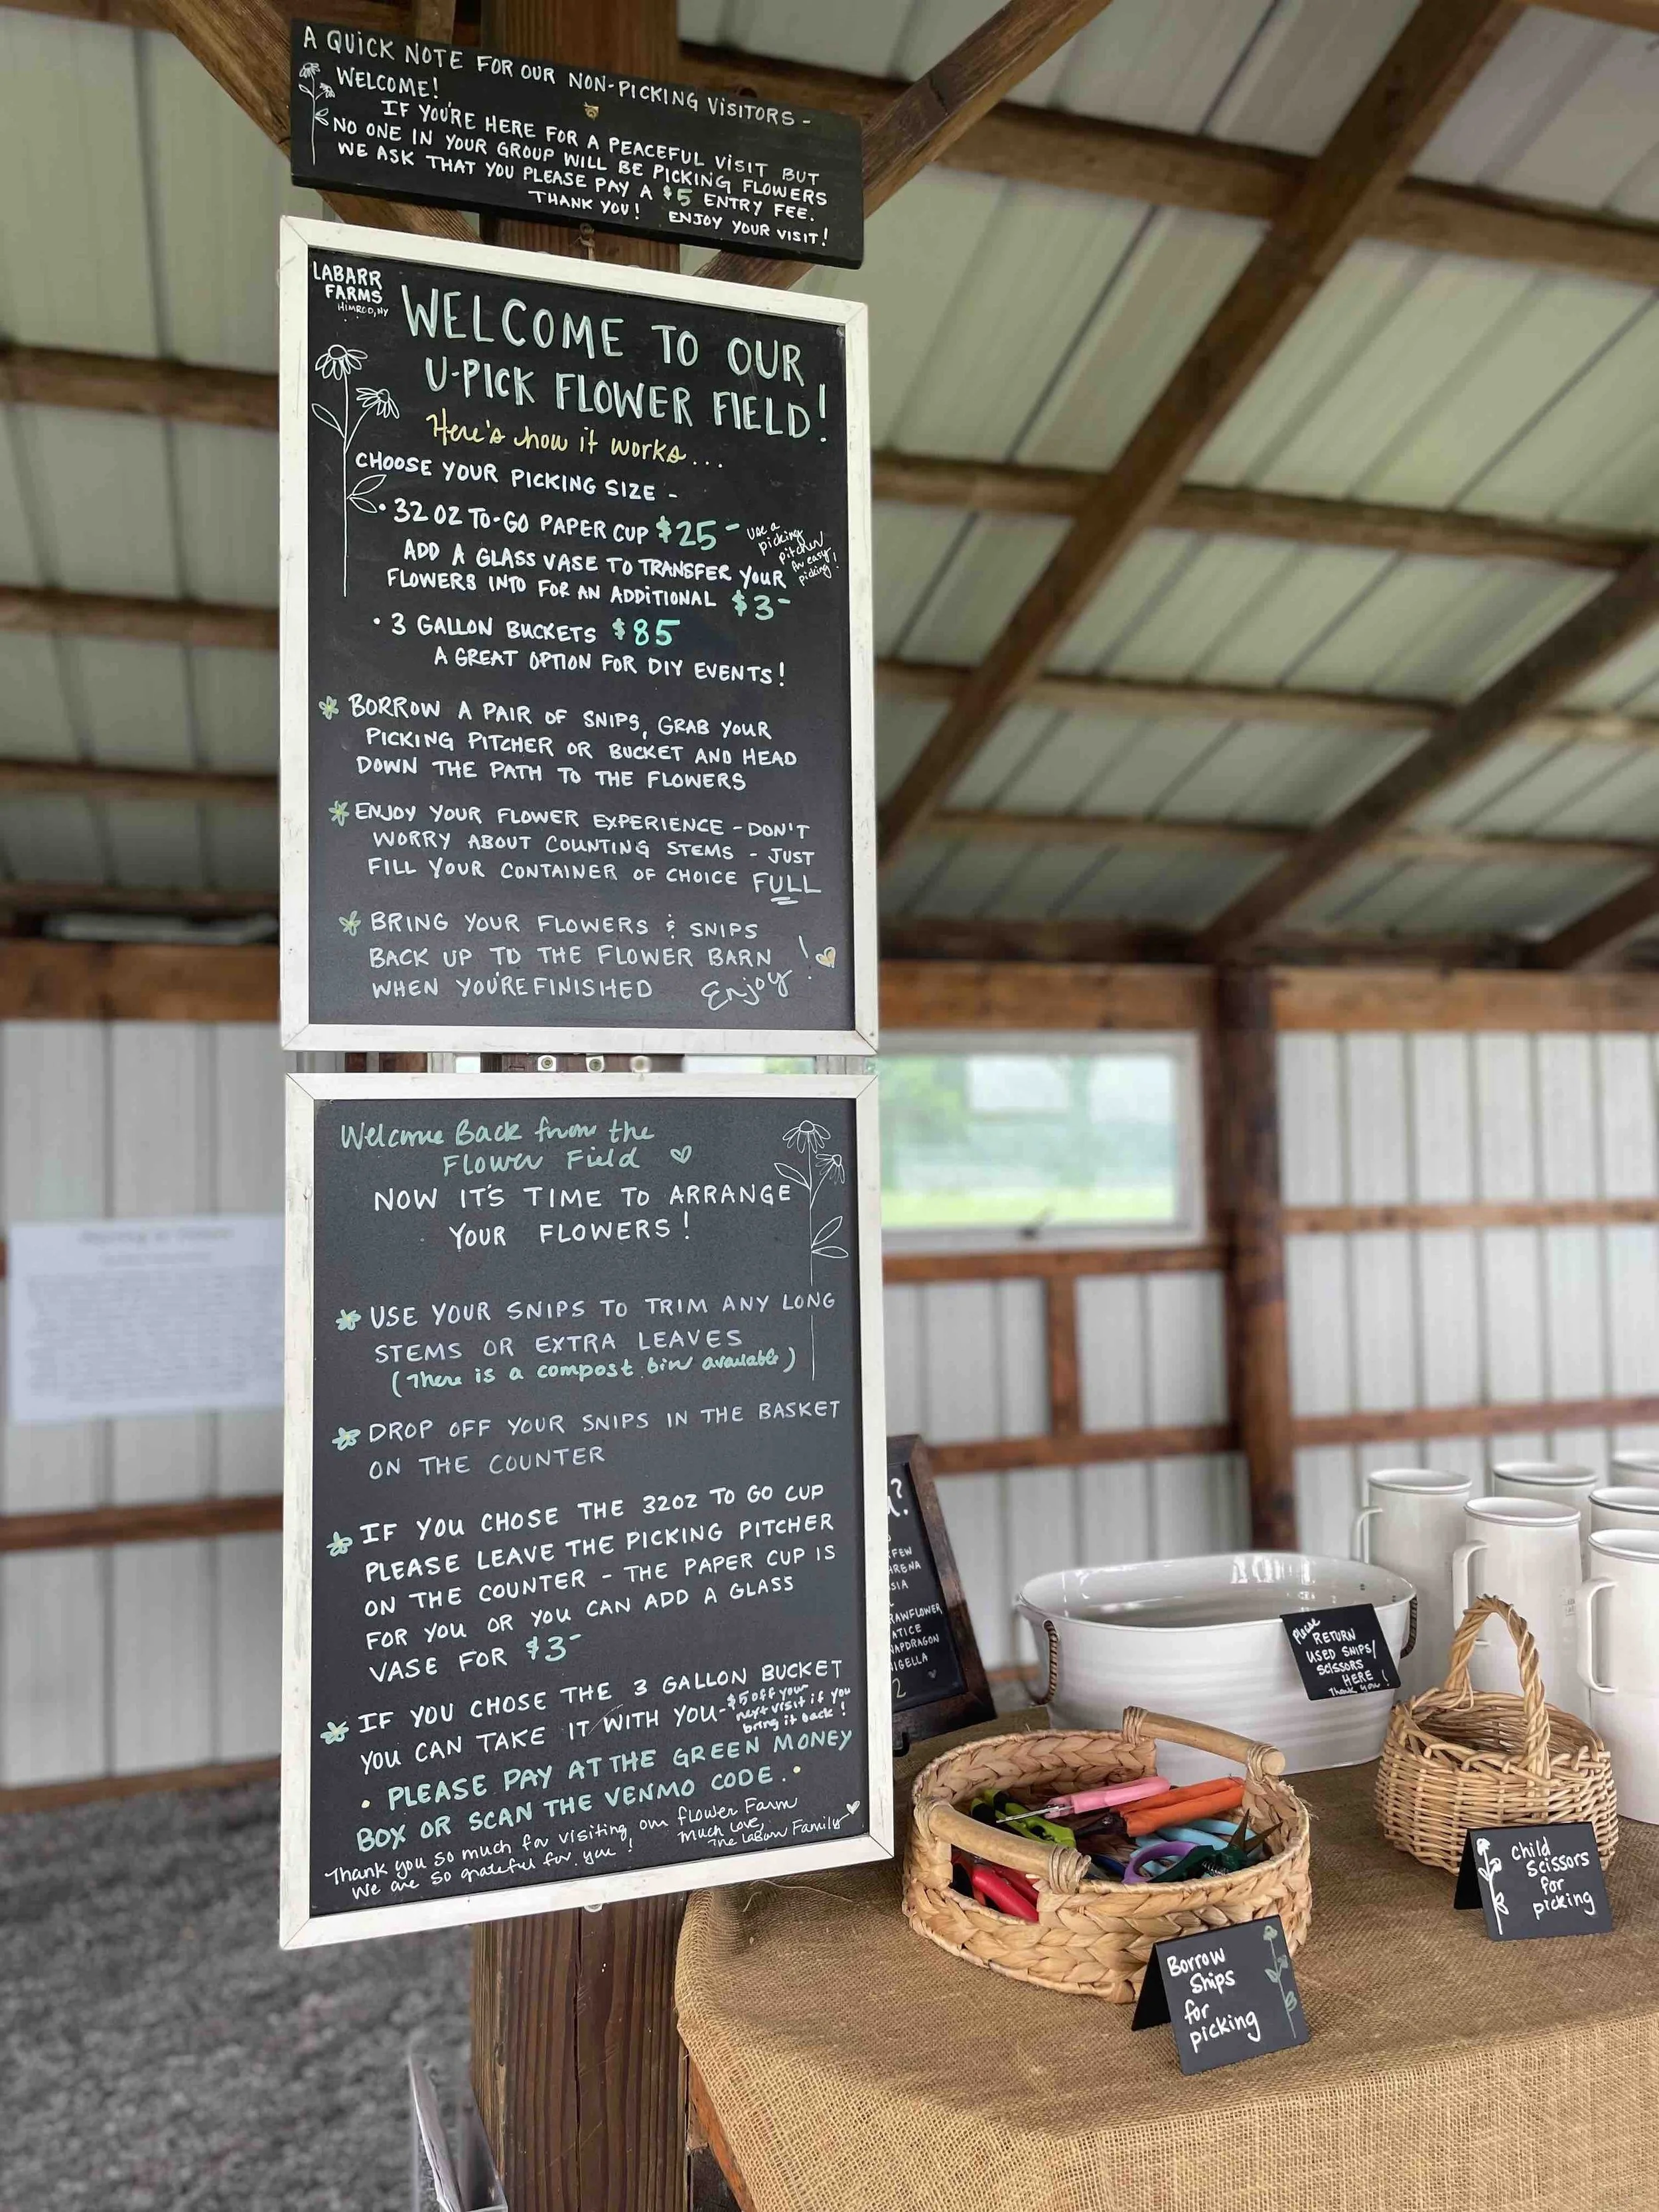 A QUICK NOTE FOR OUR NON-PICKING VISITORS -
WELCOME!
IF YOU'RE HERE FOR A PEACEFUL VISIT BUT
NO ONE IN YOUR GROUP WILL BE PICKING FLOWERS
WE ASK THAT YOU PLEASE PAY A $5 ENTRY FEE.
THANK YOU! ENJOY YOUR VISIT!
LABARR
FARMS
HIMROD, NY
WELCOME TO OUR
U-PICK FLOWER FIELD!
Here's how it works...
CHOOSE YOUR PICKING SIZE -
• 32 OZ TO-GO PAPER CUP $25 -
use a
picking
pitcher
for easy
picking!
ADD A GLASS VASE TO TRANSFER YOUR
FLOWERS INTO FOR AN ADDITIONAL $3-
• 3 GALLON BUCKETS $85
A GREAT OPTION FOR DIY EVENTS!
BORROW A PAIR OF SNIPS, GRAB YOUR
PICKING PITCHER OR BUCKET AND HEAD
DOWN THE PATH TO THE FLOWERS
ENJOY YOUR FLOWER EXPERIENCE - DON'T
WORRY ABOUT COUNTING STEMS - JUST
FILL YOUR CONTAINER OF CHOICE FULL
BRING YOUR FLOWERS & SNIPS
BACK UP TO THE FLOWER BARN
WHEN YOU'RE FINISHED Enjoy!
Welcome Back from the
Flower Field
NOW IT'S TIME TO ARRANGE
YOUR FLOWERS!
USE YOUR SNIPS TO TRIM ANY LONG
STEMS OR EXTRA LEAVES
(There is a compost bin available)
DROP OFF YOUR SNIPS IN THE BASKET
ON THE COUNTER
IF YOU CHOSE THE 32OZ TO GO CUP
PLEASE LEAVE THE PICKING PITCHER
ON THE COUNTER - THE PAPER CUP IS
FOR YOU OR YOU CAN ADD A GLASS
VASE FOR $3-
IF YOU CHOSE THE 3 GALLON BUCKET
YOU CAN TAKE IT WITH YOU-
$5 off your
next visit if you
bring it back!
• PLEASE PAY AT THE GREEN MONEY
BOX OR SCAN THE VENMO CODE. •
Thank you so much for visiting our flower Farm
We are so grateful for you!
Much Love,
The LaBarr Family
?
FEW
RENA
SIA
RAWFLOWER
ATICE
NAPDRAGON
NIGELLA
2
Please
RETURN
USED SNIPS/
SCISSORS
HERE
Thank you!
Child
Scissors
for
picking
Borrow
Snips
for
picking